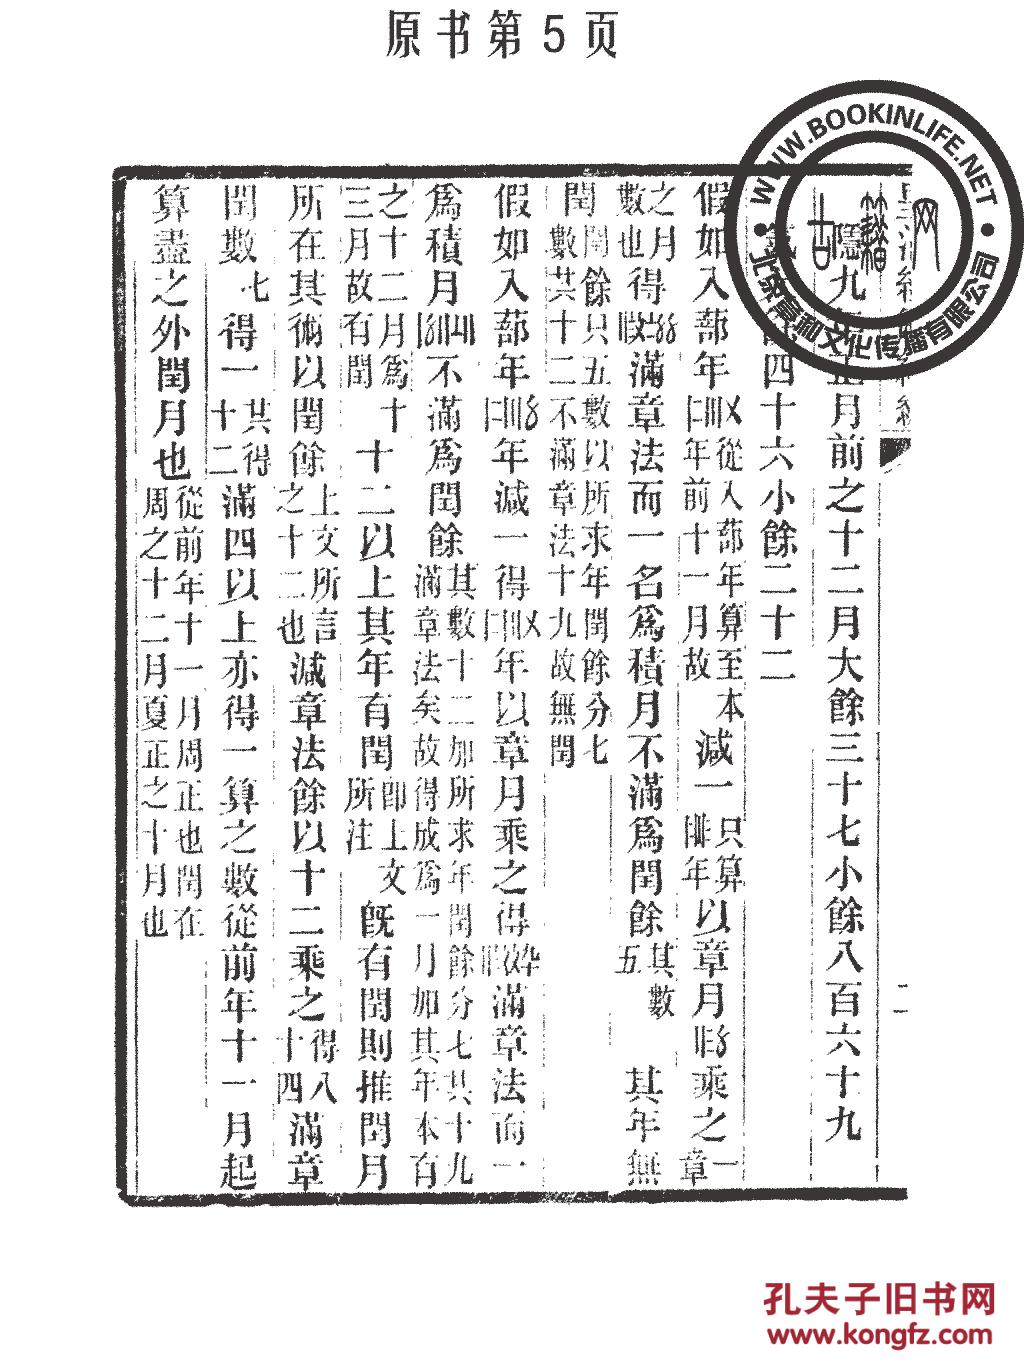 原书第5页
WWW.BOOKINLIFE.NET
北京章和文化传播有限公司
隱九年正月前之十二月大餘三十七小餘八百六十九
四十六小餘二十二
假如入蔀年年從入蔀年算至本年前十一月故減一只算年以章月乘之一章
之月數也得滿章法而一名爲積月不滿爲閏餘其數五其年無
閏閏餘只五數以所求年閏餘分七閏數共十二不滿章法十九故無閏
假如入蔀年年減一得年以章月乘之得滿章法而一
爲積月不滿爲閏餘其數十二加所求年閏餘分七共十九滿章法矣故得成爲一月加其年本有
之十二月爲十三月故有閏十二以上其年有閏卽上文所注既有閏則推閏月
所在其術以閏餘上文所言之十二也減章法餘以十二乘之得八十四滿章
閏數七得一其得十二滿四以上亦得一算之數從前年十一月起
算盡之外閏月也從前年十一月周正也閏在周之十二月夏正之十月也
二
孔夫子旧书网
www.kongfz.com